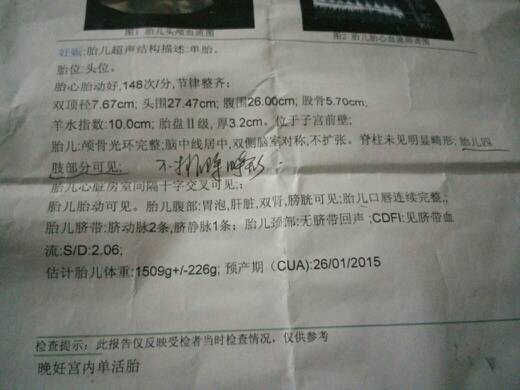 图1 胎儿头颅血流图
图2 胎儿胎心血流频谱图
妊娠:胎儿超声结构描述:单胎。
胎位:头位。
胎心胎动好,148次/分,节律整齐;
双顶径7.67cm; 头围27.47cm; 腹围26.00cm; 股骨5.70cm;
羊水指数:10.0cm; 胎盘Ⅱ级,厚3.2cm。位于子宫前壁;
胎儿:颅骨光环完整;脑中线居中,双侧脑室对称,不扩张。脊柱未见明显畸形; 胎儿四
肢部分可见; 不排除畸形;
胎儿心脏房室间隔十字交叉可见;;
胎儿胎动可见。胎儿腹部:胃泡,肝脏,双肾,膀胱可见;胎儿口唇连续完整,;
胎儿脐带:脐动脉2条,脐静脉1条; 胎儿颈部:无脐带回声 ;CDFI:见脐带血
流:S/D:2.06;
估计胎儿体重:1509g+/-226g; 预产期 (CUA):26/01/2015
检查提示: 此报告仅反映受检者当时检查情况, 仅供参考
晚妊宫内单活胎